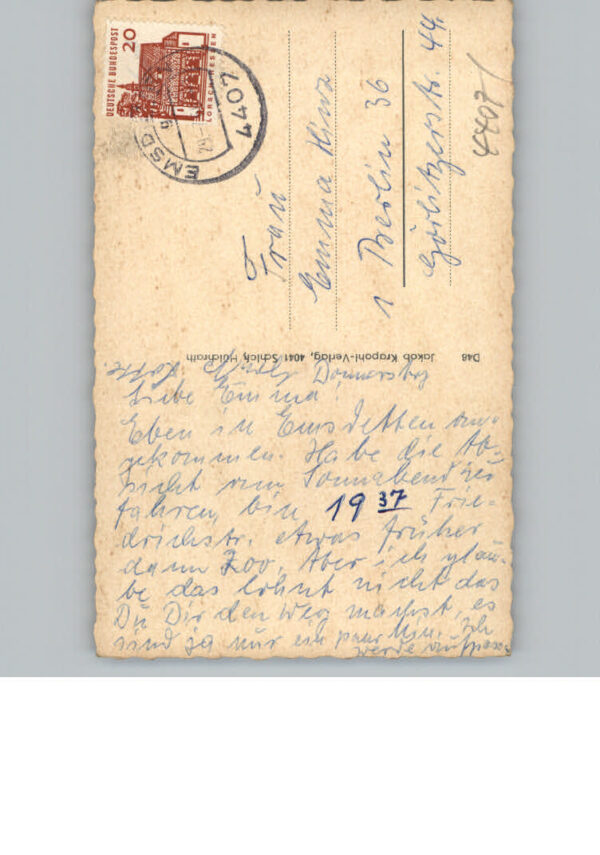 DEUTSCHE BUNDESPOST
20
LORSCH HESSEN
4407
EMSD
29.
Frau
Emma
1 Berlin 36
Görlitzerstr. 44.
4407
D48 Jakob Krapohl-Verlag, 4041 Schlich, Hülchrath
Donnerstag
Liebe Emma!
Eben in Emsdetten an-
gekommen. Habe die Ab-
sicht am Sonnabend zu
fahren, bin 19 37 Frie-
drichstr. etwas früher
dann Zoo. Aber ich glau-
be das lohnt nicht das
Du Dir den Weg machst, es
sind ja nur ein paar Min. Ich
werde aufpassen